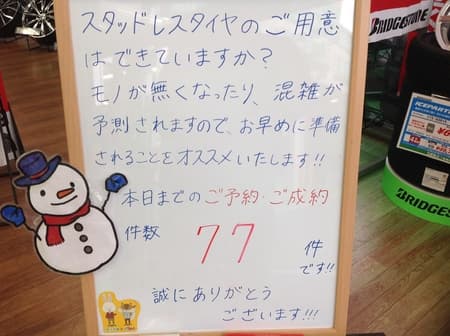 スタッドレスタイヤのご用意
はできていますか?
モノが無くなったり、混雑が
予測されますので、お早めに準備
されることをオススメいたします!!
本日までのご予約・ご成約
件数 77 件
です!!
誠にありがとう
ございます!!!
BRIDGESTONE
ICEPARTN
BRIDGEST